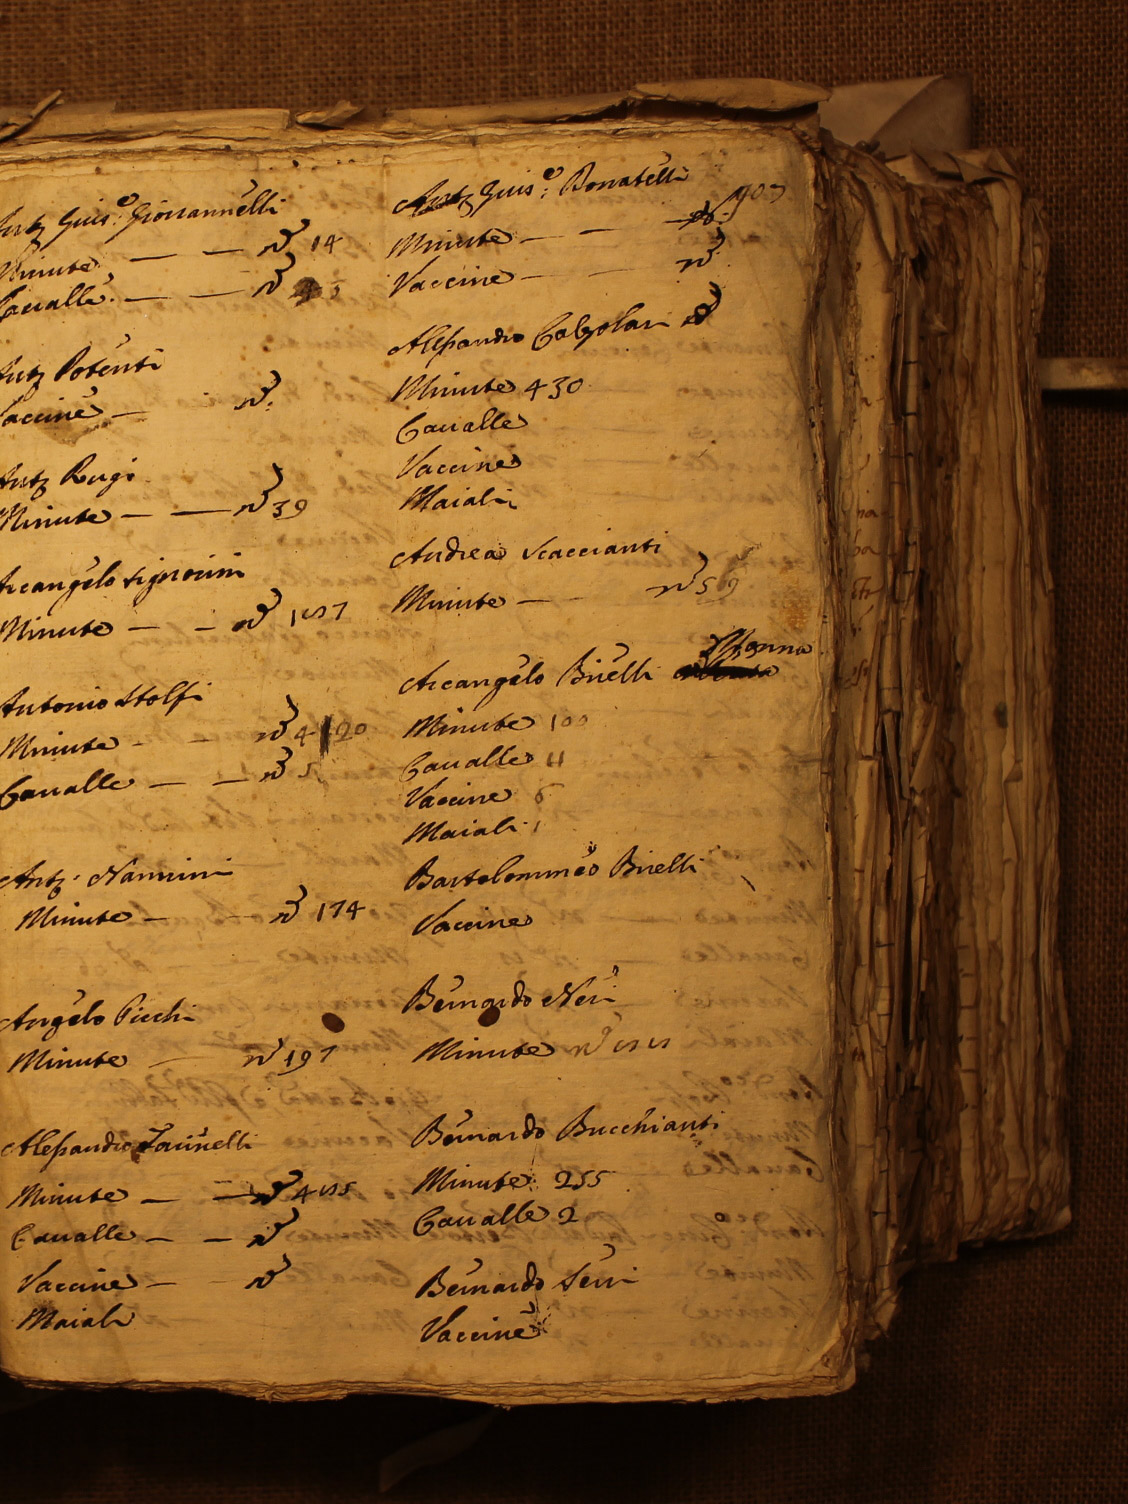 Ant.º Gius.e Giovannelli
Minute — — nº 14
Cavalle — — nº
Ant.º Potenti
Vaccine — nº
Ant.º Rugi
Minute — — nº 39
Arcangelo Signorini
Minute — — nº
Antonio Stolfi
Minute - - nº 4 20
Cavalle — — nº 5
Ant.º Nannini
Minute - - nº 174
Angelo Picchi
Minute — nº 197
Alessandro
Minute — — nº
Cavalle — — nº
Vaccine — - nº
Maiali
Ant.º Gius.e Bonatelli
Minute — — nº
Vaccine — — nº
Alessandro Calzolari nº
Minute 430
Cavalle
Vaccine
Maiali
Andrea Scaccianti
Minute — - nº 59
Arcangelo Birelli
Minute 100
Cavalle 11
Vaccine 6
Maiali 1
Bartolommeo Birelli
Vaccine
Bernardo Neri
Minute nº
Bernardo Bucchianti
Minute 255
Cavalle 2
Bernardo Serri
Vaccine